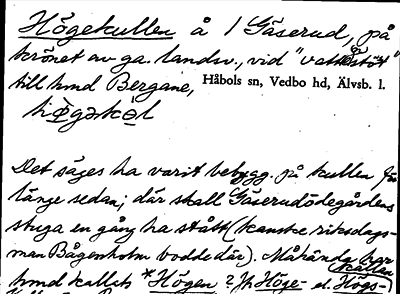 Högekullen å 1 Gäserud, på
krönet av ga. landsv., vid "vattöstöt"
till hmd Bergane, Håbols sn, Vedbo hd, Älvsb. l.
Det säges ha varit bebygg. på kullen för
länge sedan; där skall Gäserudödegårdens
stuga en gång ha stått (kanske riksdags-
man Bågenholm bodde där). Måhända har
kullen
hmd kallats *Högen? Jfr Höge- el. Högs-